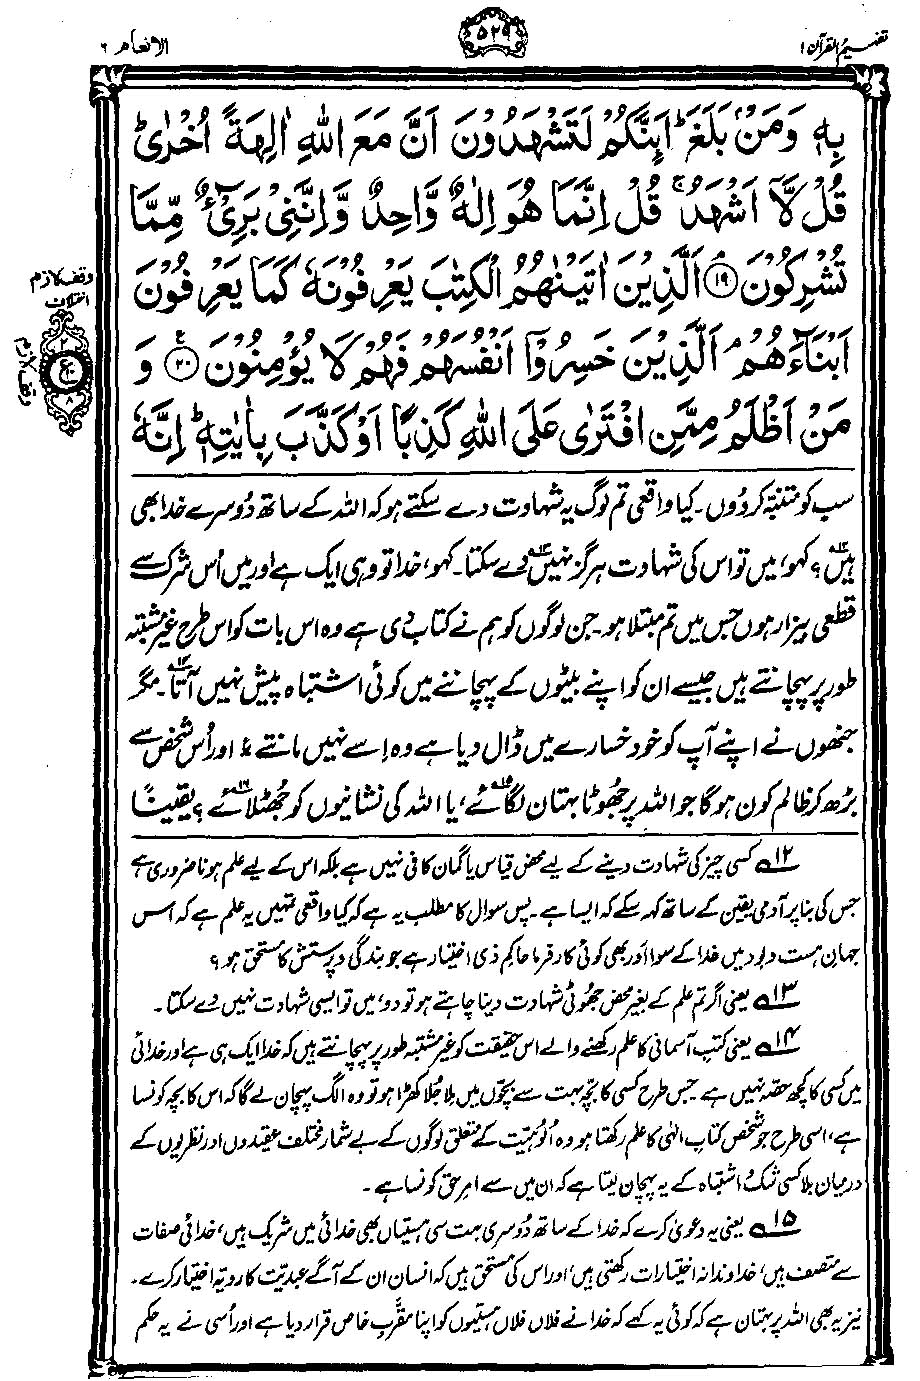 تفہیم القرآن ۱
۵۲۹
الانعام ۶
بِهٖ وَمَنْۢ بَلَغَ ؕ اَئِنَّكُمْ لَتَشْهَدُوْنَ اَنَّ مَعَ اللّٰهِ اٰلِهَةً اُخْرٰى ؕ
قُلْ لَّاۤ اَشْهَدُ ۚ قُلْ اِنَّمَا هُوَ اِلٰهٌ وَّاحِدٌ وَّاِنَّنِيْ بَرِيْٓءٌ مِّمَّا
تُشْرِكُوْنَ ۘ۝۱۹ اَلَّذِيْنَ اٰتَيْنٰهُمُ الْكِتٰبَ يَعْرِفُوْنَهٗ كَمَا يَعْرِفُوْنَ
اَبْنَآءَهُمْ ۘ اَلَّذِيْنَ خَسِرُوْۤا اَنْفُسَهُمْ فَهُمْ لَا يُؤْمِنُوْنَ ۠۝۲۰ وَ
مَنْ اَظْلَمُ مِمَّنِ افْتَرٰى عَلَى اللّٰهِ كَذِبًا اَوْ كَذَّبَ بِاٰيٰتِهٖ ؕ اِنَّهٗ
وقف لازم
وقف لازم
۲
ع
۸
سب کو متنبّہ کردوں۔ کیا واقعی تم لوگ یہ شہادت دے سکتے ہو کہ اللہ کے ساتھ دُوسرے خدا بھی
ہیں؟۱۲ کہو، میں تو اس کی شہادت ہرگز نہیں دے سکتا۱۳۔ کہو، خدا تو وہی ایک ہے اور میں اُس شرک سے
قطعی بیزار ہوں جس میں تم مبتلا ہو۔ جن لوگوں کو ہم نے کتاب دی ہے وہ اس بات کو اس طرح غیر مشتبہ
طور پر پہچانتے ہیں جیسے ان کو اپنے بیٹوں کے پہچاننے میں کوئی اشتباہ پیش نہیں آتا۱۴۔ مگر
جنھوں نے اپنے آپ کو خود خسارے میں ڈال دیا ہے وہ اِسے نہیں مانتے ؏ اور اُس شخص سے
بڑھ کر ظالم کون ہوگا جو اللہ پر جھوٹا بہتان لگائے۱۵، یا اللہ کی نشانیوں کو جھٹلائے۱۶؟ یقیناً
۱۲؎ کسی چیز کی شہادت دینے کے لیے محض قیاس یا گمان کافی نہیں ہے بلکہ اس کے لیے علم ہونا ضروری ہے
جس کی بنا پر آدمی یقین کے ساتھ کہہ سکے کہ ایسا ہے۔ پس سوال کا مطلب یہ ہے کہ کیا واقعی تمہیں یہ علم ہے کہ اس
جہانِ ہست و بود میں خدا کے سوا اور بھی کوئی کار فرما حاکمِ ذی اختیار ہے جو بندگی و پرستش کا مستحق ہو؟
۱۳؎ یعنی اگر تم علم کے بغیر محض جھوٹی شہادت دینا چاہتے ہو تو دو، میں تو ایسی شہادت نہیں دے سکتا۔
۱۴؎ یعنی کتبِ آسمانی کا علم رکھنے والے اس حقیقت کو غیر مشتبہ طور پر پہچانتے ہیں کہ خدا ایک ہی ہے اور خدائی
میں کسی کا کچھ حصّہ نہیں ہے۔ جس طرح کسی کا بچّہ بہت سے بچّوں میں مِلا جُلا کھڑا ہو تو وہ الگ پہچان لے گا کہ اس کا بچہ کونسا
ہے، اسی طرح جو شخص کتابِ الٰہی کا علم رکھتا ہو وہ اُلوہیّت کے متعلق لوگوں کے بے شمار مختلف عقیدوں اور نظریوں کے
درمیان بلا کسی شک و اشتباہ کے یہ پہچان لیتا ہے کہ ان میں سے امرِ حق کونسا ہے۔
۱۵؎ یعنی یہ دعویٰ کرے کہ خدا کے ساتھ دُوسری بہت سی ہستیاں بھی خدائی میں شریک ہیں، خدائی صفات
سے متصف ہیں، خداوندانہ اختیارات رکھتی ہیں، اور اس کی مستحق ہیں کہ انسان ان کے آگے عبدیّت کا رویّہ اختیار کرے۔
نیز یہ بھی اللہ پر بہتان ہے کہ کوئی یہ کہے کہ خدا نے فلاں فلاں ہستیوں کو اپنا مقرّبِ خاص قرار دیا ہے اور اُسی نے یہ حکم